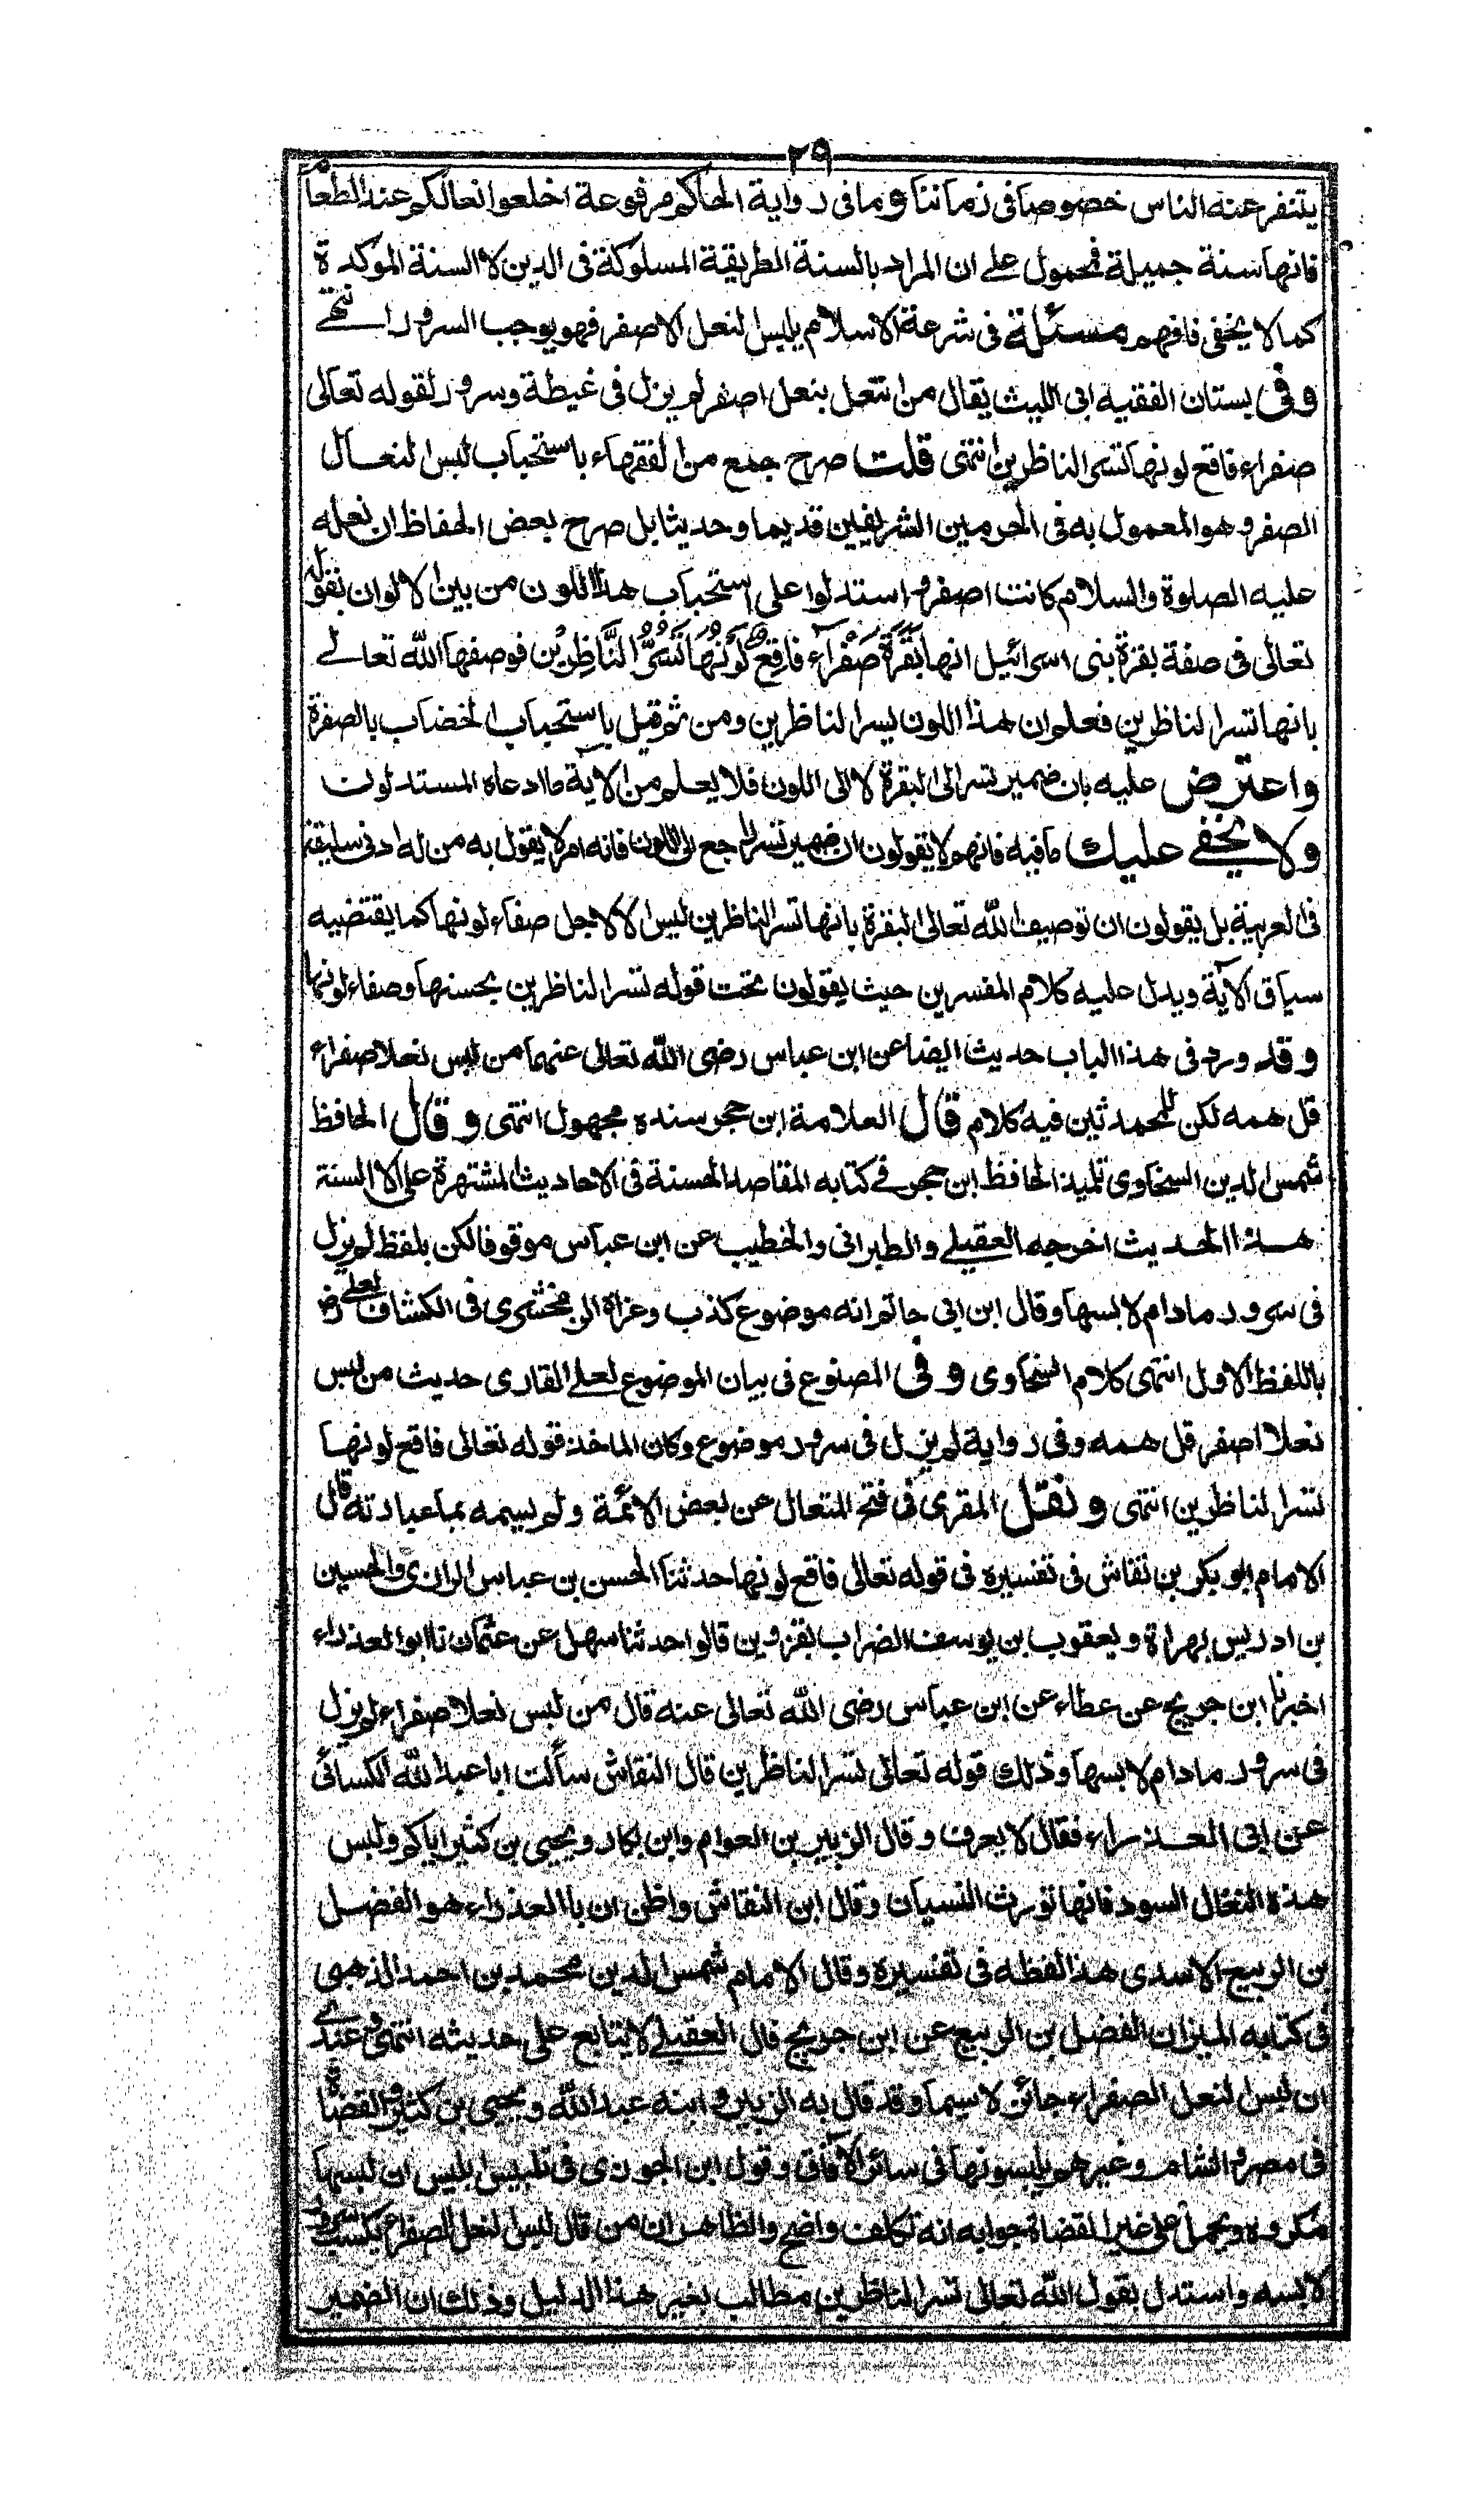 ٢٩
يتنفر عنه الناس خصوصا فى زماننا وما فى رواية الحاكم مرفوعة اخلعوا نعالكم عند الطعام
فانها سنة جميلة فمحمول على ان المراد بالسنة الطريقة المسلوكة فى الدين لا السنة الموكدة
كما لا يخفى فافهم مسئلة فى شرعة الاسلام يلبس النعل الاصفر فهو يوجب السرور انتهى
وفى بستان الفقيه ابى الليث يقال من انتعل بنعل اصفر لم يزل فى غيطة وسرور لقوله تعالى
صفراء فاقع لونها تسر الناظرين انتهى قلت صرح جمع من الفقهاء باستحباب لبس النعال
الصفر وهو المعمول به فى الحرمين الشريفين قديما وحديثا بل صرح بعض الحفاظ ان نعله
عليه الصلوة والسلام كانت اصفر واستدلوا على استحباب هذا اللون من بين الالوان بقوله
تعالى فى صفة بقرة بنى اسرائيل انها بَقَرَةٌ صَفْرَآء فاقِعٌ لَوْنُهَا تَسُرُّ النَّاظِرِيْن فوصفها الله تعالے
بانها تسر الناظرين فعلم ان هذا اللون يسر الناظرين ومن ثم قيل باستحباب الخضاب بالصفرة
واعترض عليه بان ضمير تسر الى البقرة لا الى اللون فلا يعلم من الآية ما ادعاه المستدلون
ولا يخفى عليك ما فيه فانهم لا يقولون ان ضمير تسر راجع الى اللون فانه امر لا يقول به من له ادنى سليقة
فى العربية بل يقولون ان توصيف الله تعالى البقرة بانها تسر الناظرين ليس الا لاجل صفاء لونها كما يقتضيه
سياق الآية ويدل عليه كلام المفسرين حيث يقولون تحت قوله تسر الناظرين بحسنها وصفاء لونها
وقد ورد فى هذا الباب حديث ايضا عن ابن عباس رضى الله تعالى عنهما من لبس نعلا صفراء
قل همه لكن للمحدثين فيه كلام قال العلامة ابن حجر سنده مجهول انتهى وقال الحافظ
شمس الدين السخاوى تلميذ الحافظ ابن حجر فى كتابه المقاصد الحسنة فى الاحاديث المشتهرة على الالسنة
هذا الحديث اخرجه العقيلے والطبرانى والخطيب عن ابن عباس موقوفا لكن بلفظ لم يزل
فى سرور مادام لابسها وقال ابن ابى حاتم انه موضوع كذب وعزاه الزمخشرى فى الكشاف لعلے رض
باللفظ الاول انتهى كلام السخاوى وفى المصنوع فى بيان الموضوع لعلے القارى حديث من لبس
نعلا اصفر قل همه وفى رواية لم يزل فى سرور موضوع وكان الماخذ قوله تعالى فاقع لونها
تسر الناظرين انتهى ونقل المقرى فى فتح المتعال عن بعض الائمة ولم يسمه بما عبارته قال
الامام ابو بكر بن نقاش فى تفسيره فى قوله تعالى فاقع لونها حدثنا الحسن بن عباس الرازى والحسين
بن ادريس بهراة ويعقوب بن يوسف الضراب بقزوين قالوا حدثنا سهل عن عثمان نا ابو العذراء
اخبرنا ابن جريج عن عطاء عن ابن عباس رضى الله تعالى عنه قال من لبس نعلا صفراء لم يزل
فى سرور مادام لابسها وذلك قوله تعالى تسر الناظرين قال النقاش سألت ابا عبد الله الكسائى
عن ابى العذراء فقال لا يعرف وقال الزبير بن العوام وابن بكار ويحيى بن كثير اياكم ولبس
هذه النعال السود فانها تورث النسيان وقال ابن النقاش واظن ان ابا العذراء هو الفضل
بن الربيع الاسدى هذا لفظه فى تفسيره وقال الامام شمس الدين محمد بن احمد الذهبى
فى كتابه الميزان الفضل بن الربيع عن ابن جريج قال العقيلے لا يتابع على حديثه انتهى وعندے
ان لبس النعل الصفراء جائز لا سيما وقد قال به الزبير وابنه عبد الله ويحيى بن كثير والقضاة
فى مصر والشام وغيرهم يلبسونها فى سائر الآفاق وقول ابن الجوزى فى تلبيس ابليس ان لبسها
مكروه ويحمل على غير القضاة جوابه انه تكلف واضح والظاهر ان من قال لبس النعل الصفراء يكسب سرور
لابسه واستدل بقول الله تعالى تسر الناظرين مطالب بغير هذا الدليل وذلك ان الضمير